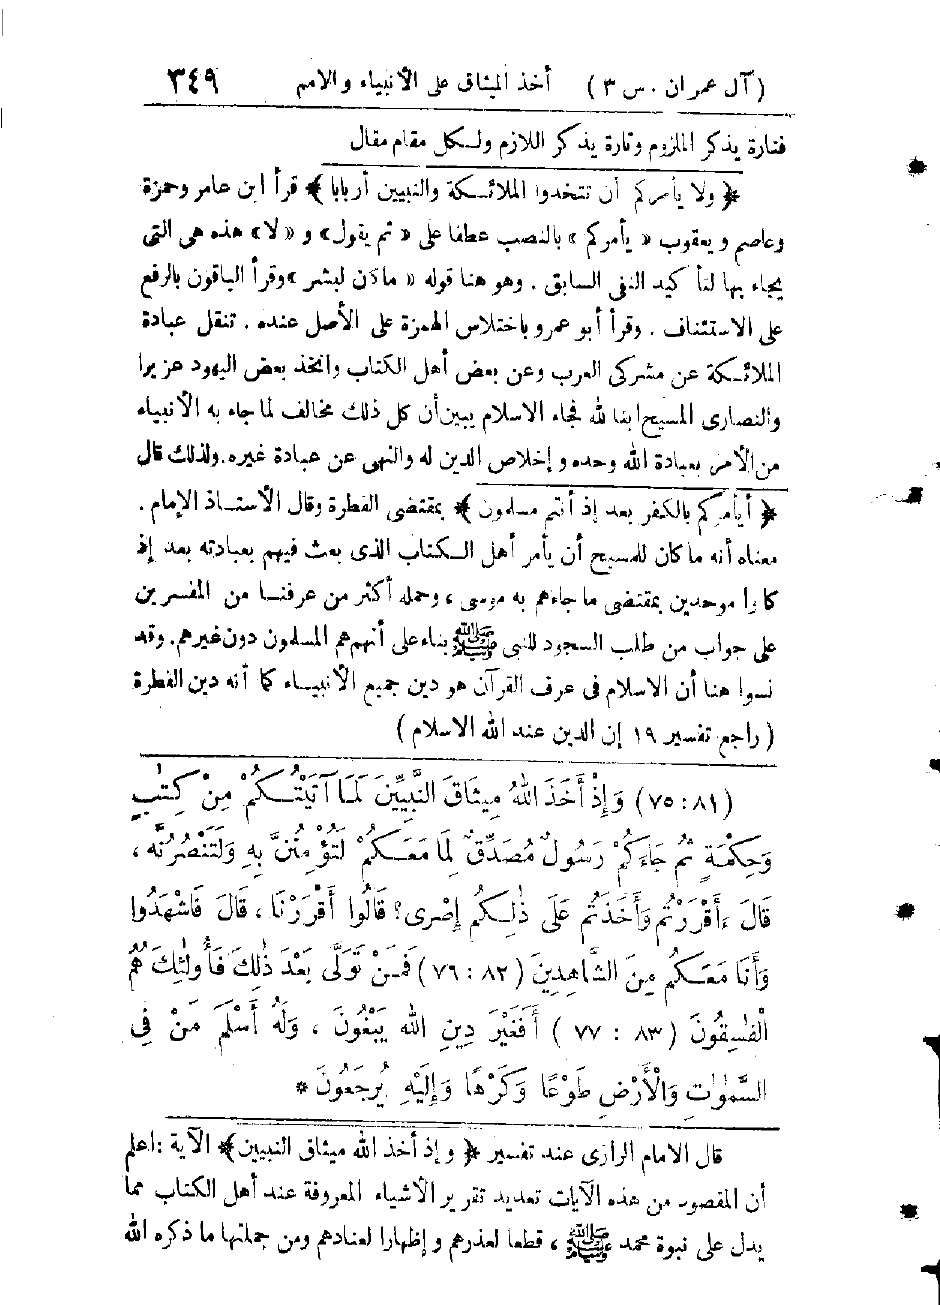 (آل عمران . س ٣) أخذ الميثاق على الأنبياء والأمم ٣٤٩
فتارة يذكر الملزوم وتارة يذكر اللازم ولكل مقام مقال
﴿ ولا يأمركم أن تتخذوا الملائكة والنبيين أربابا ﴾ قرأ ابن عامر وحمزة
وعاصم ويعقوب « يأمركم » بالنصب عطفا على « ثم يقول» و «لا» هذه هى التى
يجاء بها لتأكيد النفى السابق . وهو هنا قوله « ما كان لبشر » وقرأ الباقون بالرفع
على الاستئناف . وقرأ أبو عمرو باختلاس الهمزة على الأصل عنده . تنقل عبادة
الملائكة عن مشركى العرب وعن بعض أهل الكتاب واتخذ بعض اليهود عزيرا
والنصارى المسيح ابنا لله فجاء الاسلام يبين أن كل ذلك مخالف لما جاء به الأنبياء
من الأمر بعبادة الله وحده وإخلاص الدين له والنهى عن عبادة غيره. ولذلك قال
﴿ أيأمركم بالكفر بعد إذ أنتم مسلمون ﴾ بمقتضى الفطرة وقال الأستاذ الإمام .
معناه أنه ما كان للمسيح أن يأمر أهل الكتاب الذى بعث فيهم بعبادته بعد إذ
كانوا موحدين بمقتضى ما جاءهم به موسى ، وحمله أكثر من عرفنا من المفسرين
على جواب من طلب السجود للنبى ﷺ بناء على أنهم هم المسلمون دون غيرهم. وقد
نسوا هنا أن الاسلام فى عرف القرآن هو دين جميع الأنبياء كما أنه دين الفطرة
( راجع تفسير ١٩ إن الدين عند الله الاسلام )
(٨١ : ٧٥) وَإِذْ أَخَذَ اللهُ مِيثَاقَ النَّبِيِّينَ لَمَا آتَيْتُكُمْ مِنْ كِتٰبٍ
وَحِكْمَةٍ ثُمَّ جَاءَكُمْ رَسُولٌ مُصَدِّقٌ لِمَا مَعَكُمْ لَتُؤْمِنُنَّ بِهِ وَلَتَنْصُرُنَّه ،
قَالَ ءَأَقْرَرْتُمْ وَأَخَذْتُمْ عَلَى ذٰلِكُمْ إِصْرِى؟ قَالُوا أَقْرَرْنَا ، قَالَ فَاشْهَدُوا
وَأَنَا مَعَكُمْ مِنَ الشَّاهِدِينَ (٨٢ : ٧٦) فَمَنْ تَوَلَّى بَعْدَ ذٰلِكَ فَأُولٰئِكَ هُمُ
الْفٰسِقُونَ (٨٣ : ٧٧) أَفَغَيْرَ دِينِ اللهِ يَبْغُونَ ، وَلَهُ أَسْلَمَ مَنْ فِى
السَّمٰوٰتِ وَالْأَرْضِ طَوْعًا وَكَرْهًا وَإِلَيْهِ يُرْجَعُونَ *
قال الامام الرازى عند تفسير ﴿ وإذ أخذ الله ميثاق النبيين ﴾ الآية : اعلم
أن المقصود من هذه الآيات تعديد تقرير الأشياء المعروفة عند أهل الكتاب مما
يدل على نبوة محمد ﷺ ، قطعا لعذرهم وإظهارا لعنادهم ومن جملتها ما ذكره الله